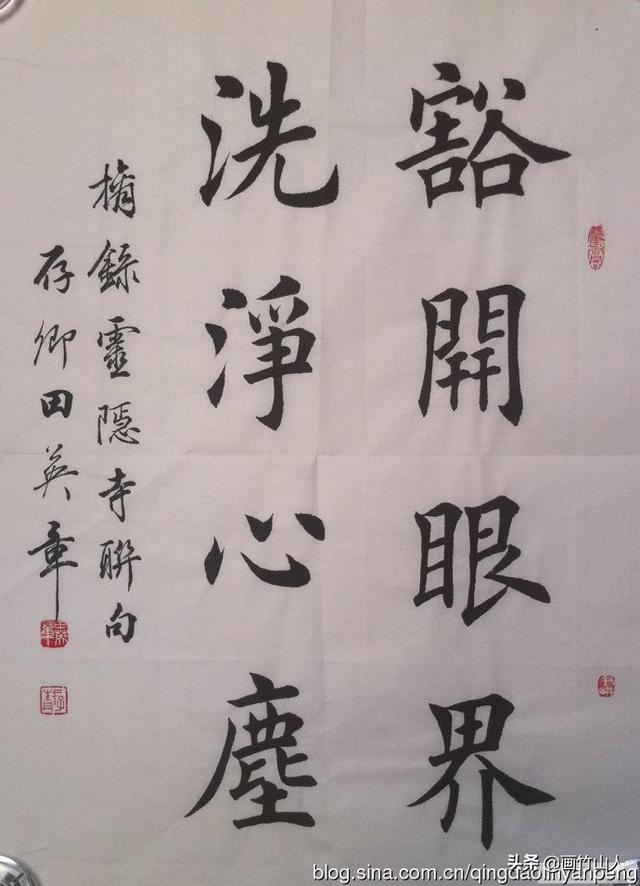 豁開眼界
洗淨心塵
摘錄靈隱寺聯句
存卿田英章
头条@画竹山人
blog.sina.com.cn/qingdaolinyanpeng